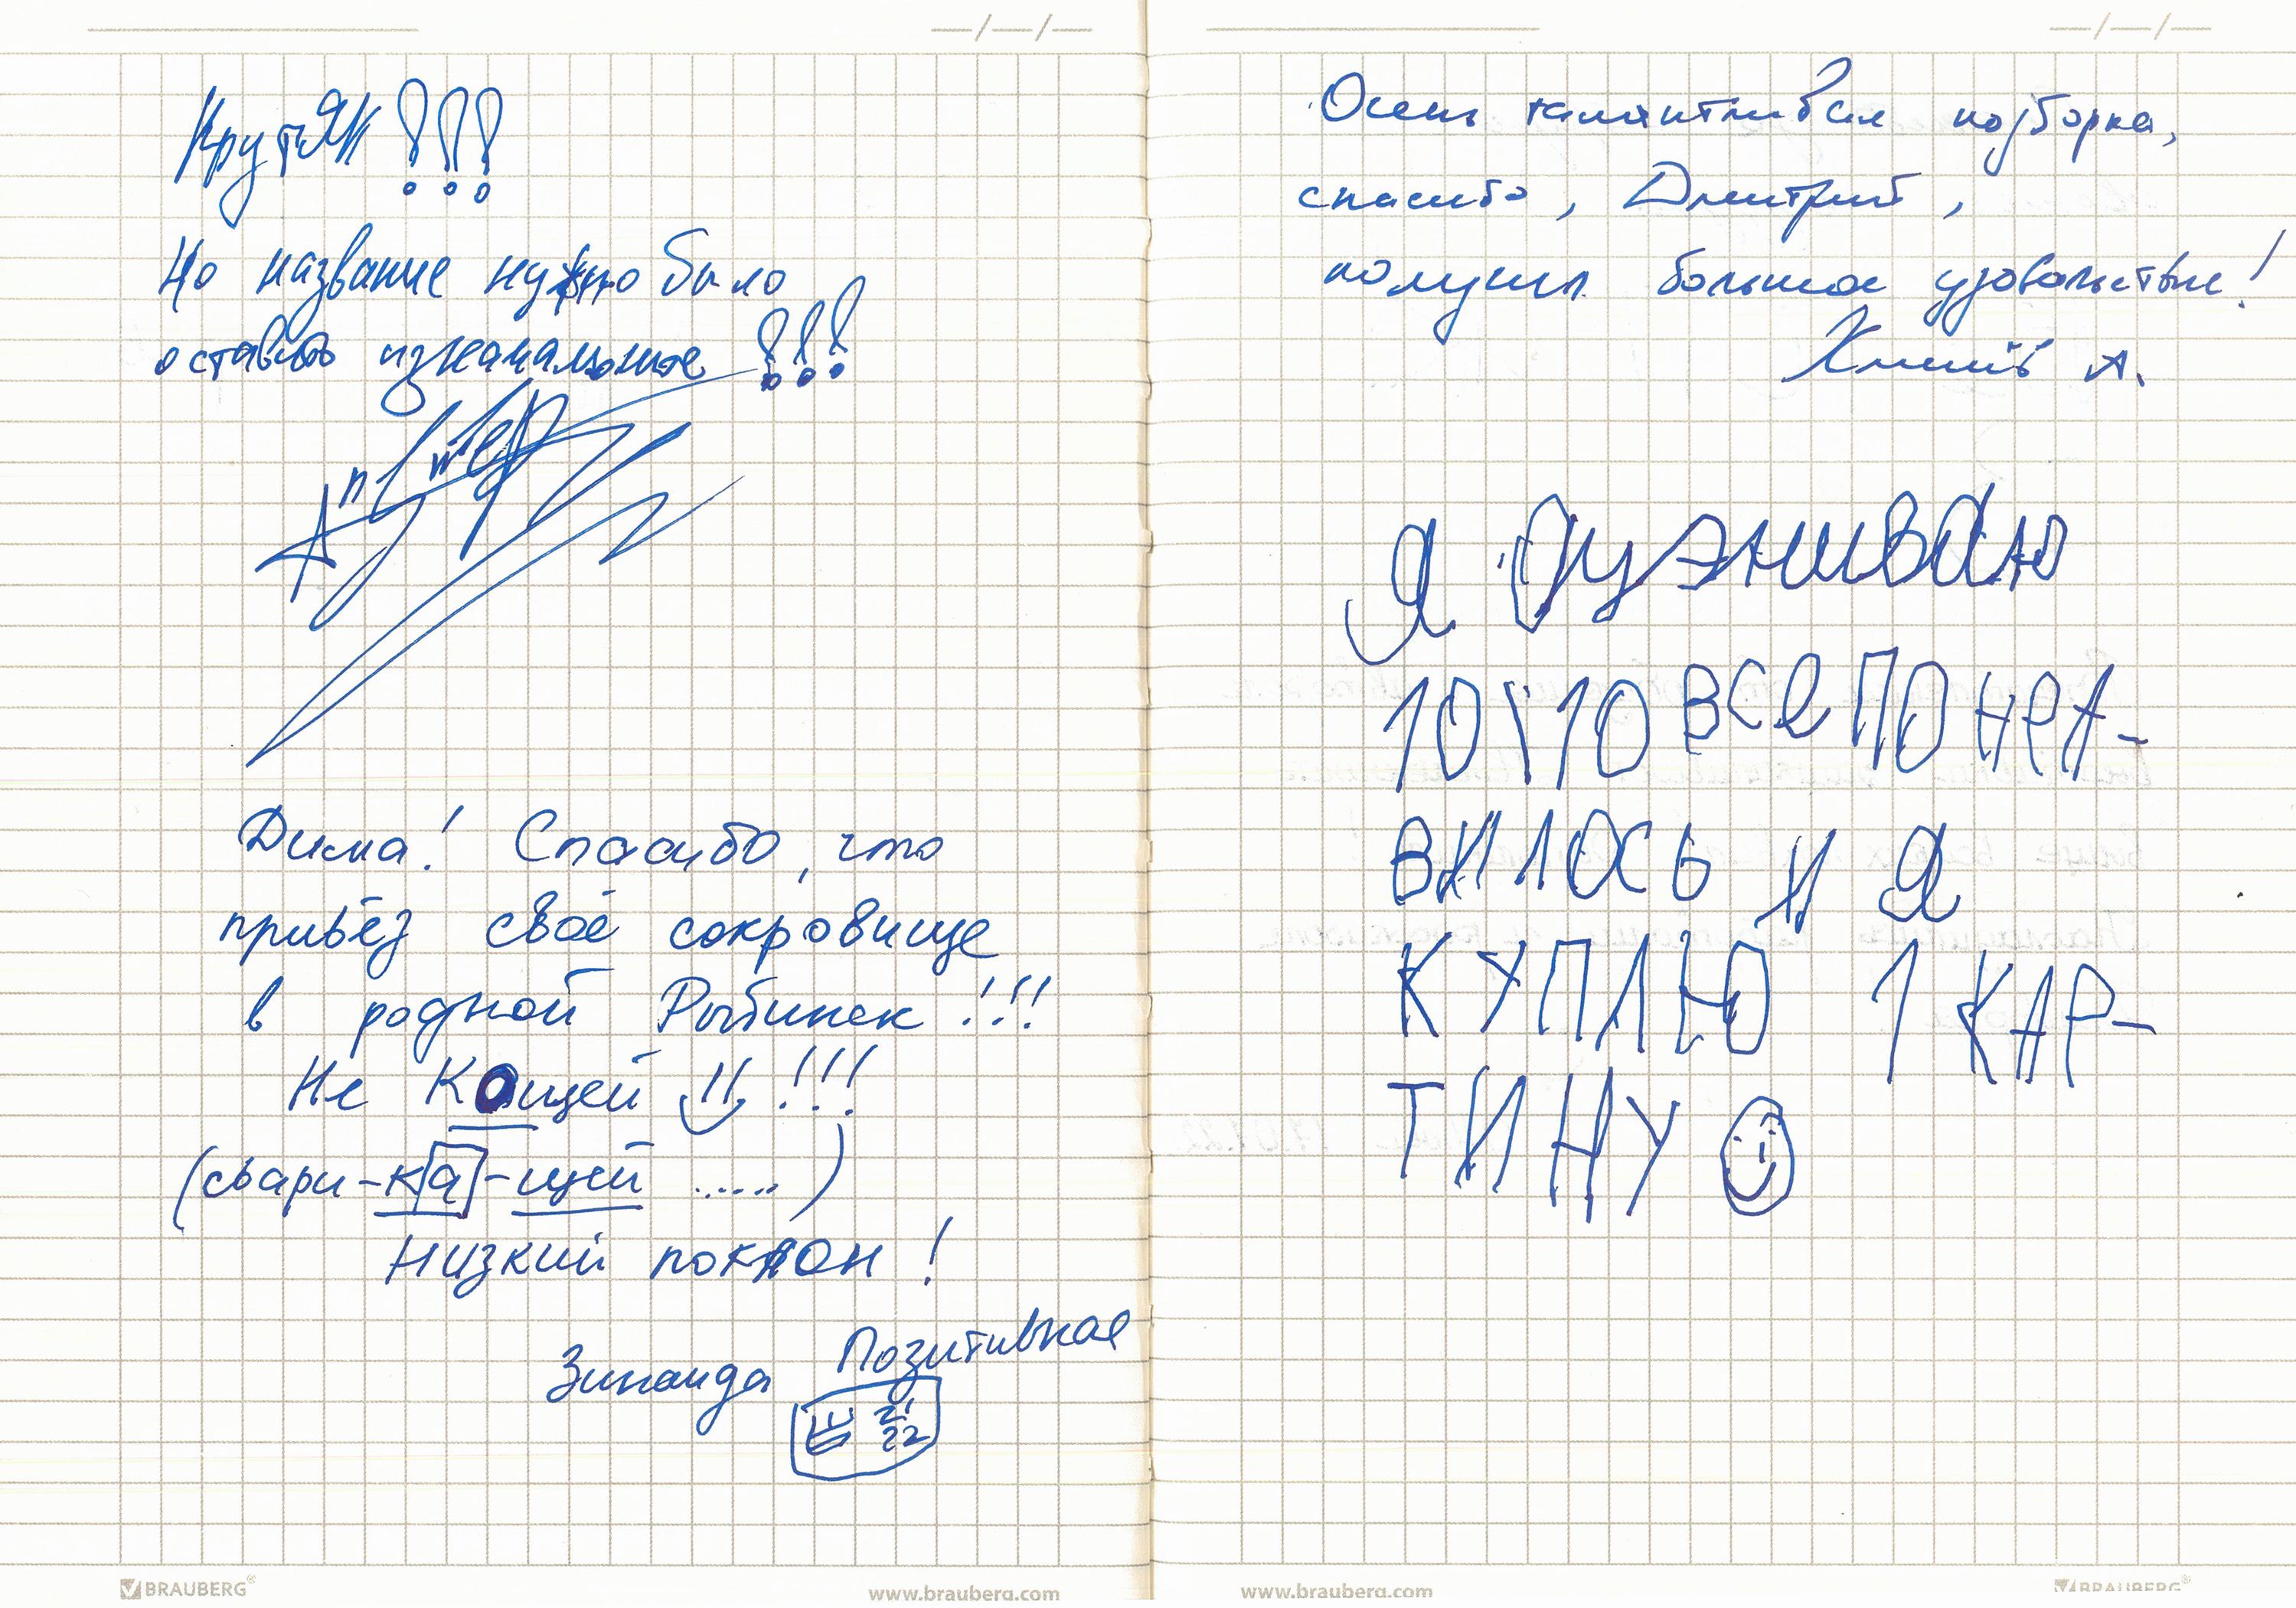 —/—/—
КрутЯК !!!
Но название нужно было
оставить изначальное !!!
Дима! Спасибо, что
привёз своё сокровище
в родной Рыбинск!!!
Не Кощей !!!
(свари-ка-щей ......)
Низкий поклон!
Зинаида Позитивная
21
22
BRAUBERG®
www.brauberg.com
—/—/—
Очень талантливая подборка,
спасибо, Дмитрий,
получил большое удовольствие!
А.
Я оуэниваю
10\10 ВСе ПОНРА-
ВИЛОСЬ И Я
КУПЛЮ 1 КАР-
ТИНУ
www.brauberg.com
BRAUBERG®